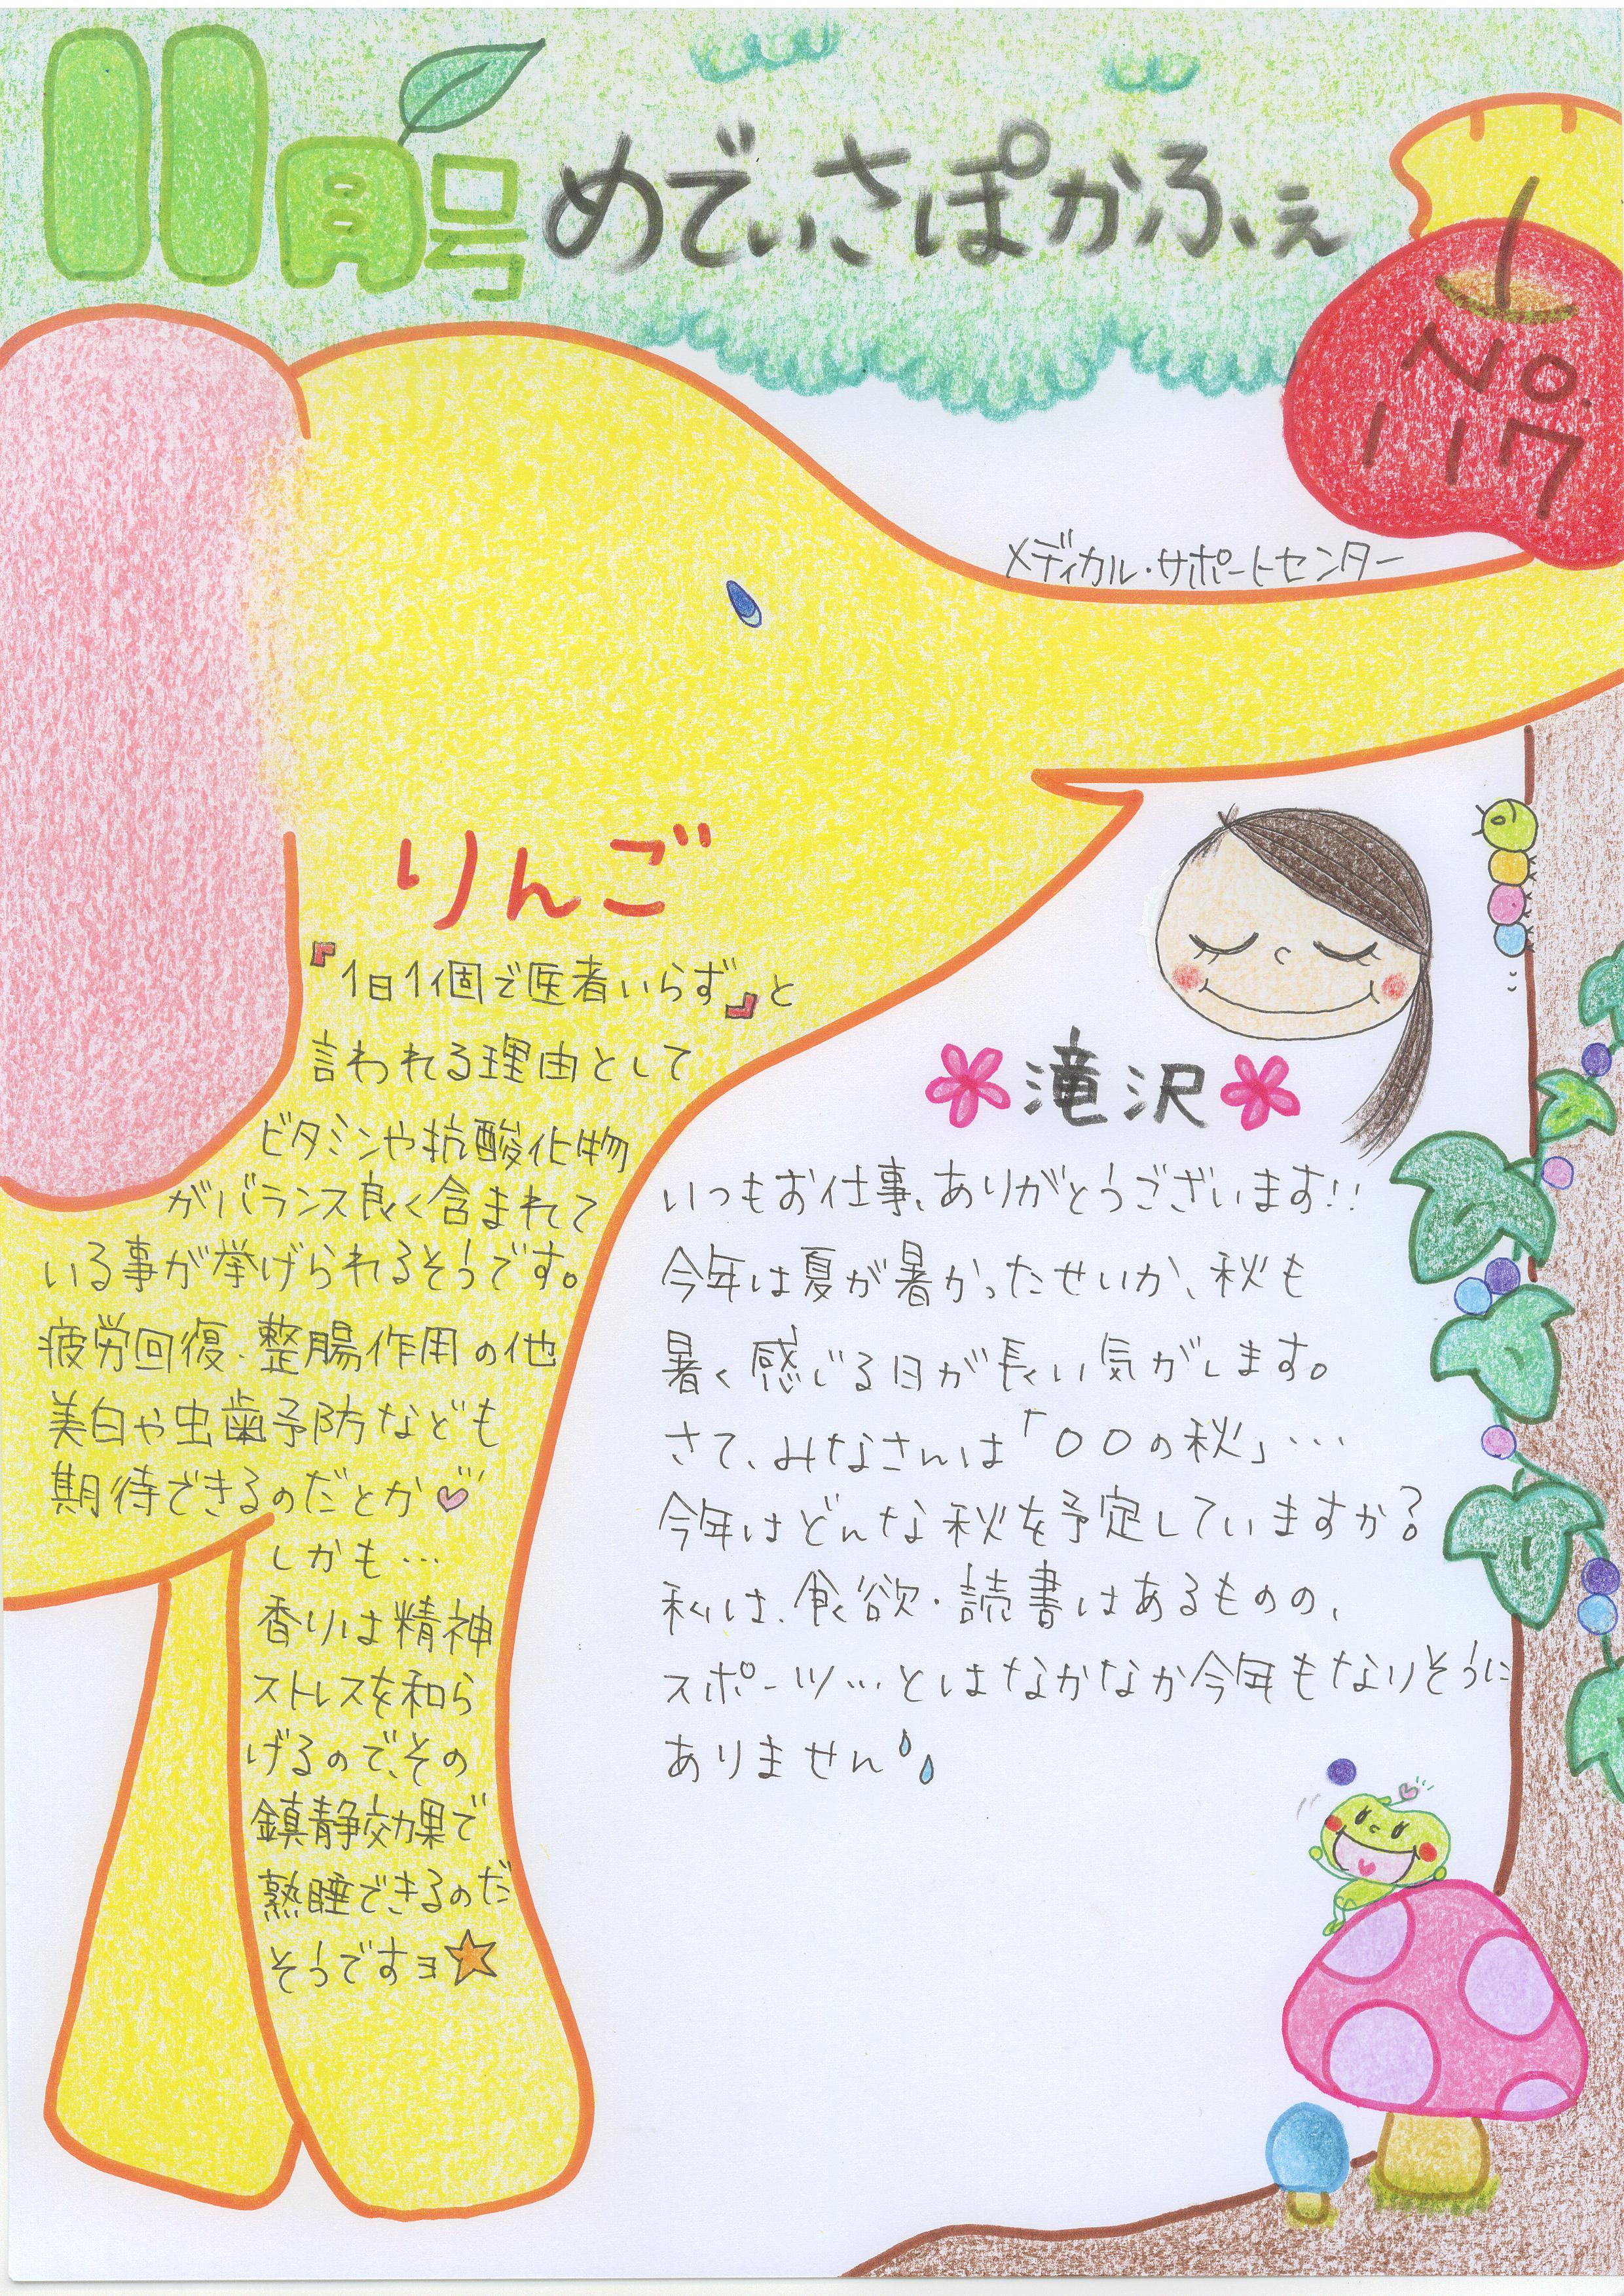 11月号
めでぃさぽかふぇ
No.
117
メディカル・サポートセンター
りんご
『1日1個で医者いらず』と
言われる理由として
ビタミンや抗酸化物
がバランス良く含まれて
いる事が挙げられるそうです。
疲労回復、整腸作用の他
美白や虫歯予防なども
期待できるのだとか♡
しかも…
香りは精神
ストレスを和ら
げるので、その
鎮静効果で
熟睡できるのだ
そうですヨ☆
滝沢
いつもお仕事、ありがとうございます!!
今年は夏が暑かったせいか、秋も
暑く感じる日が長い気がします。
さて、みなさんは「〇〇の秋」…
今年はどんな秋を予定していますか?
私は、食欲・読書はあるものの、
スポーツ…とはなかなか今年もなりそうに
ありません